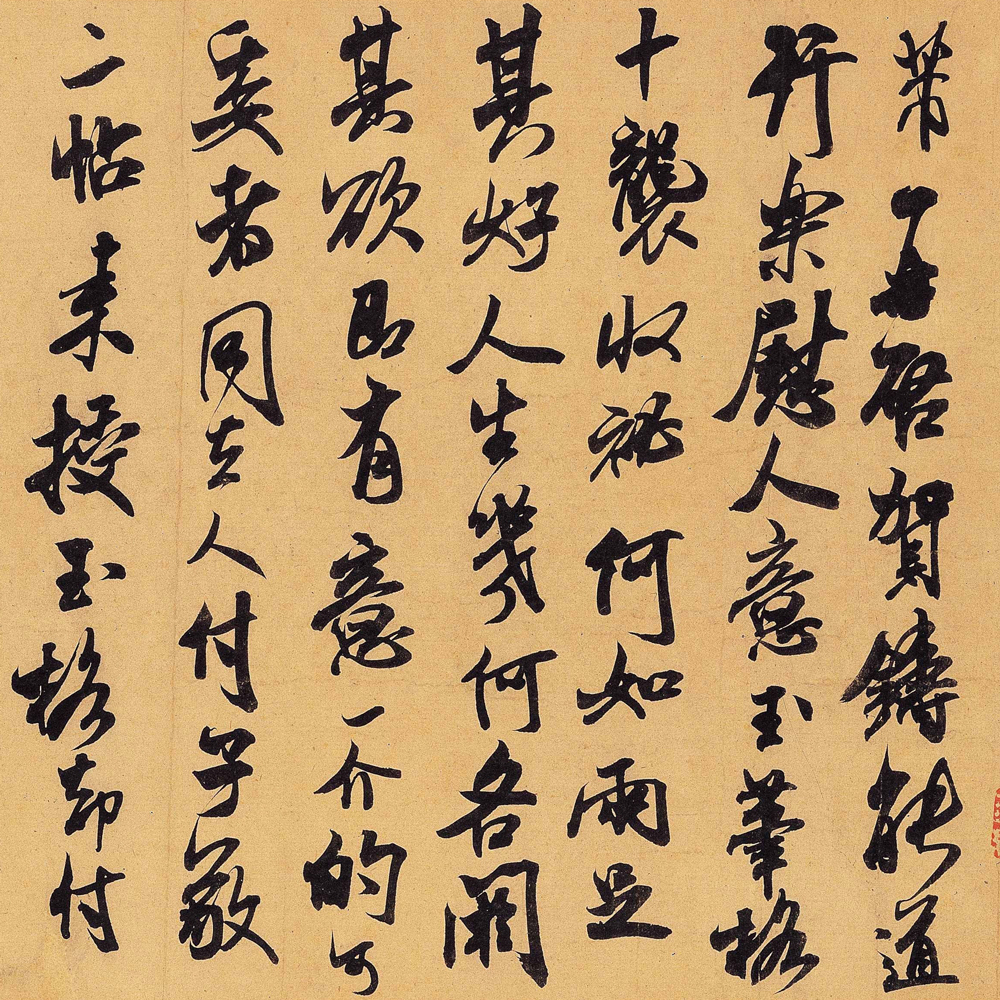 芾再啓賀鑄能道
行樂慰人意玉筆格
十襲收秘何如兩足
其好人生幾何各閼
其欲即有意一介的可
委者同去人付子敬
二帖来授玉格却付